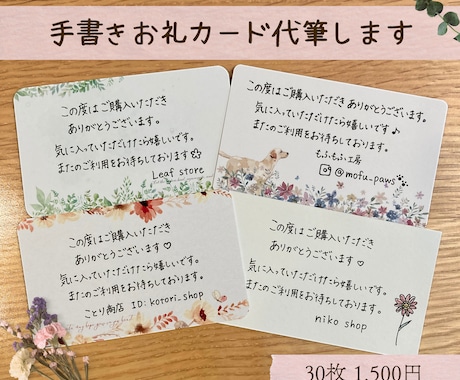 手書きお礼カード代筆します
この度はご購入いただき
ありがとうございます。
気に入っていただけたら嬉しいです。
またのご利用をお待ちしております
Leaf store
この度はご購入いただき ありがとうございます。
気に入っていただけたら嬉しいです♪
またのご利用をお待ちしております。
もふもふ工房
@mofu_paws
この度はご購入いただき
ありがとうございます♡
気に入っていただけたら嬉しいです。
またのご利用をお待ちしております。
ことり商店 ID: kotori_shop
この度はご購入いただき
ありがとうございます♡
気に入っていただけたら嬉しいです。
またのご利用をお待ちしております。
niko shop
30枚 1,500円